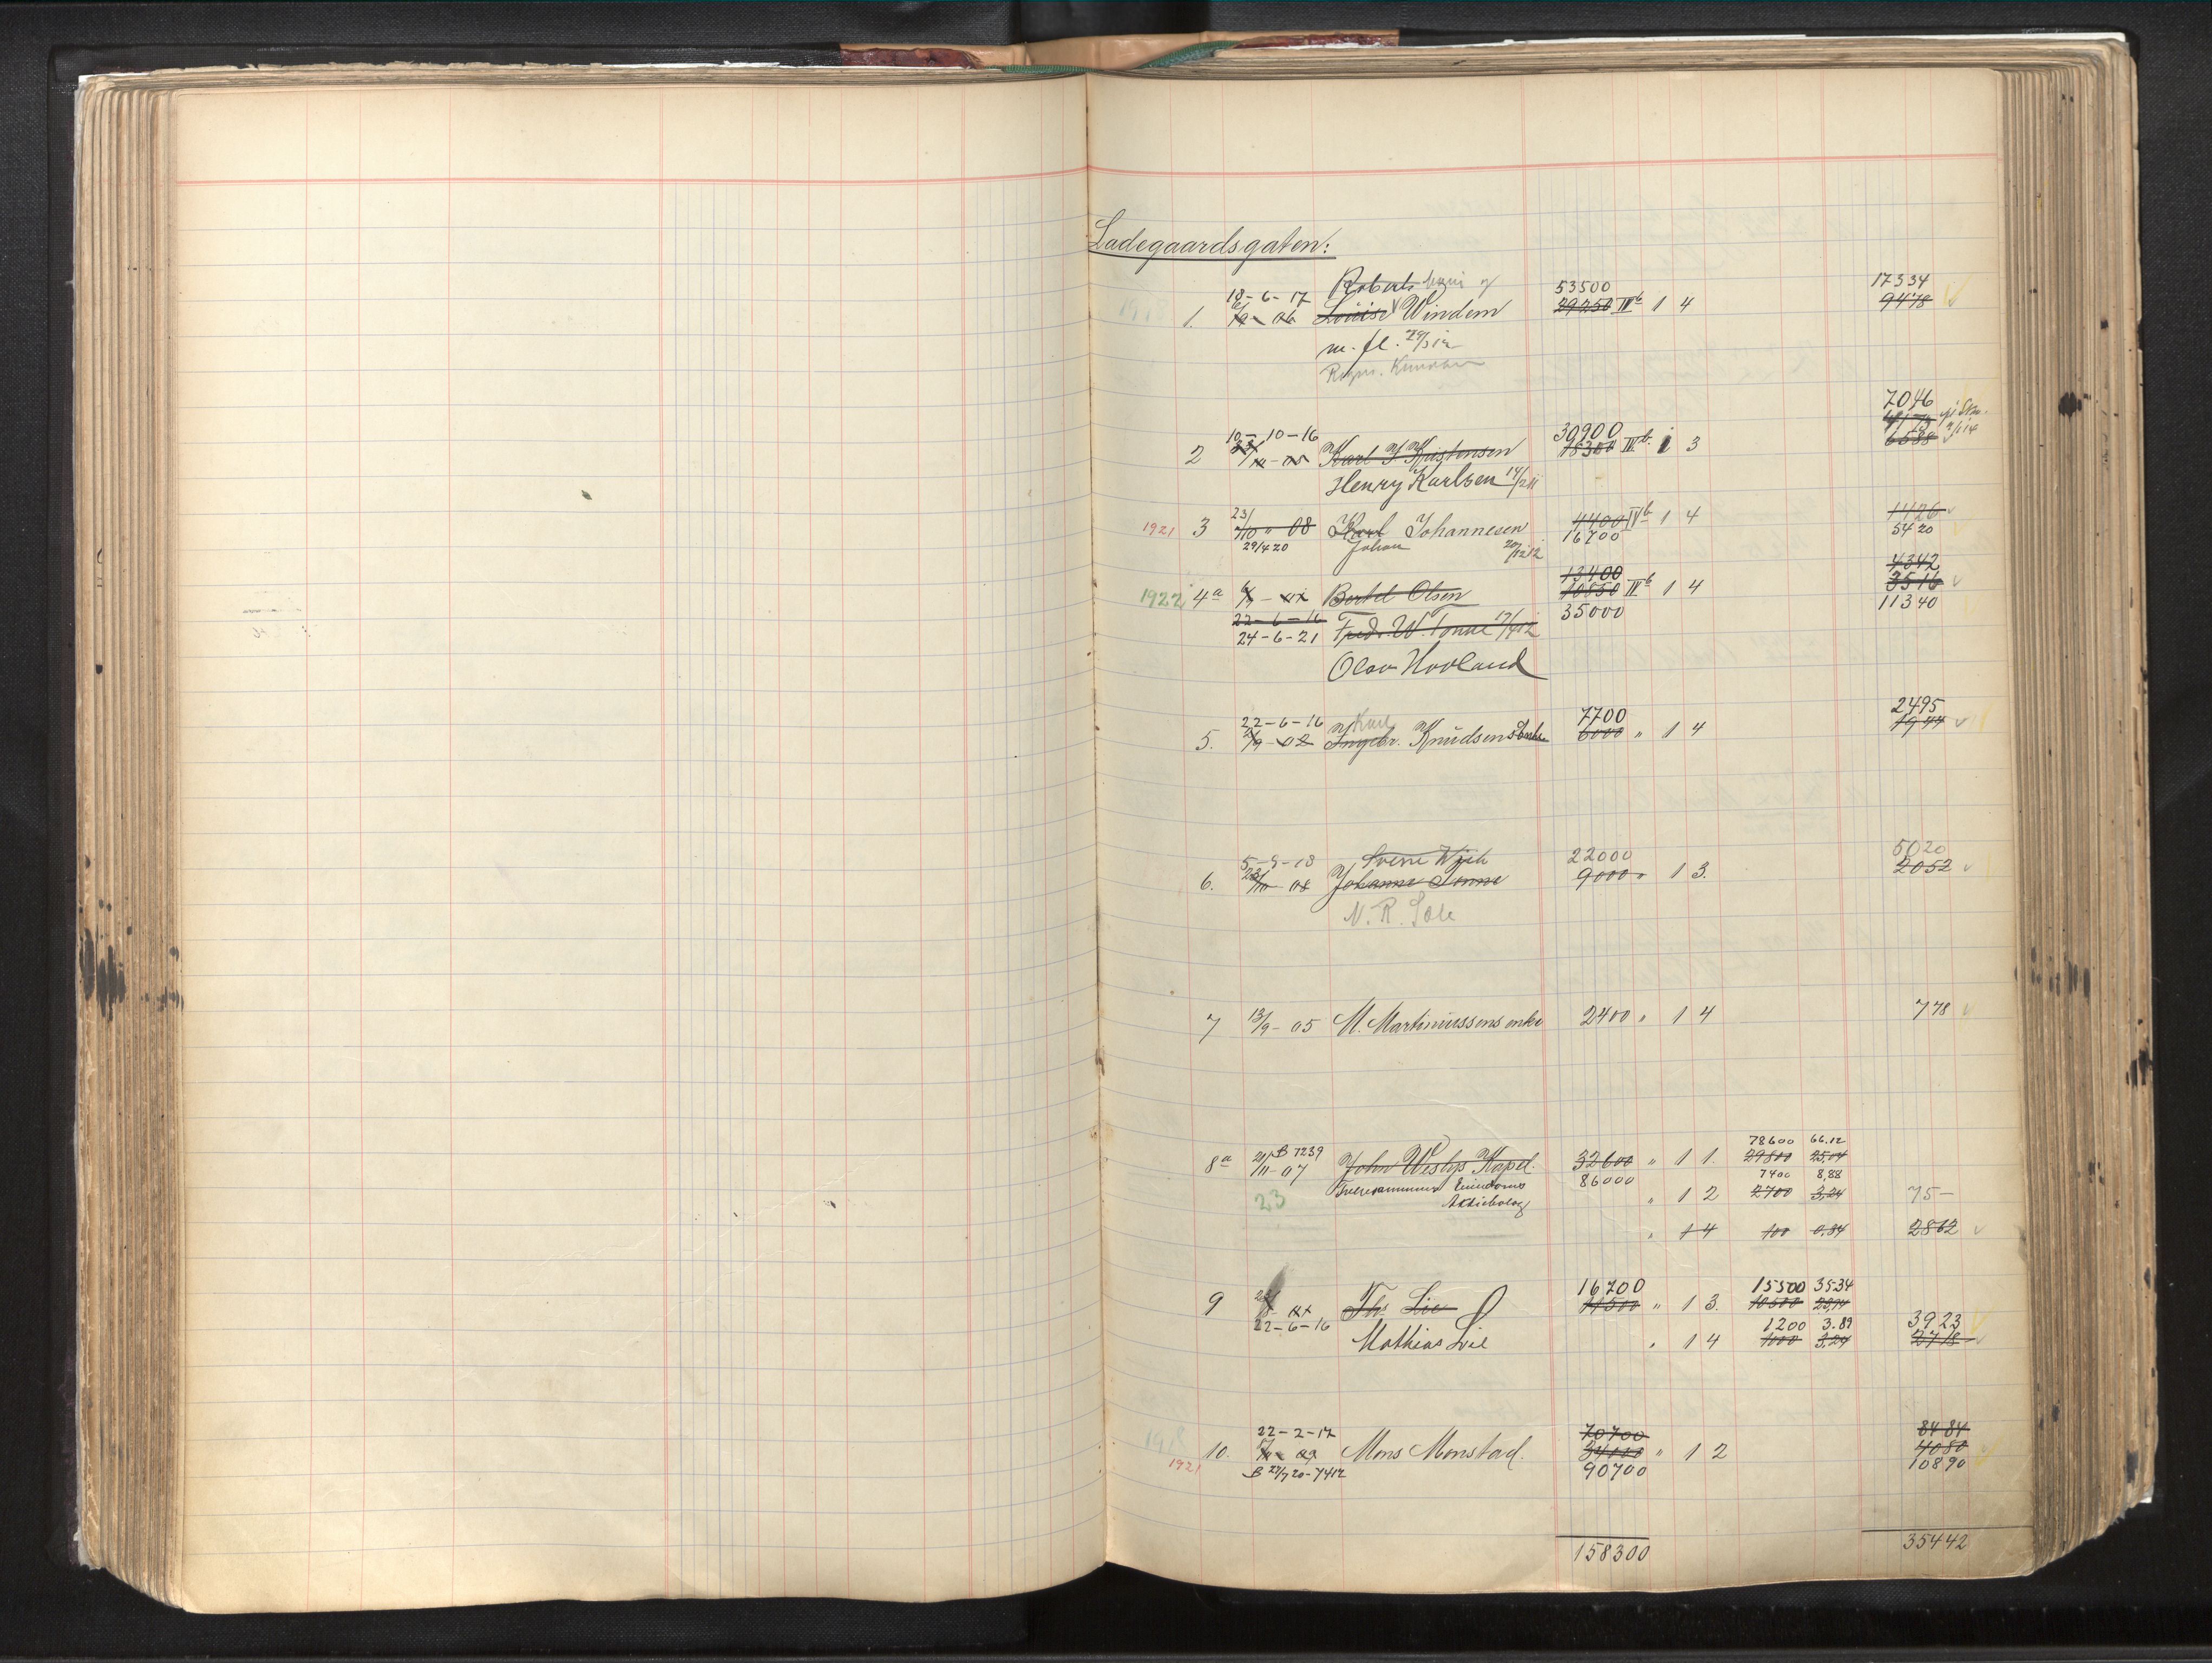 Ladegaardsgaten:
18-6-17 Roberts 53500 17334
1. 06 Louise Windem 29250 IVb 1 4 9478
m. fl. 29/3 12
10-10-16 30900 7046
2 Karl J Kristensen 18300 IVb 1 3
Henry Karlsen 14/2 11
23/
1921 3 08 Karl Johannesen 4400 IVb 1 4 1426
29/4 20 Johan 16700 5420
13400 4342
1922 4a Bertel Olsen 10850 IVb 1 4 3516
22-6-16 Fredr. W. Tonne 35000 11340
24-6-21
Olav Hovland
22-6-16 Karl 7700 2495
5. 02 Ingebr. Knudsens enke 6000 " 1 4 1944
5-9-18 Sverre Wich 22000 5020
6. 08 Johanne Tonne 9000 " 1 3. 2052
N. R. Sæle
7 13/9-05 M. Martinussens enke 2400 " 1 4 778
B 7239 78600 66.12
8a 07 John Weslys Kapel. 32600 " 1 1. 29800 25,04
86000 7400 8,88
23 Eiendoms " 1 2 2700 3,24 75-
Aktiebolag
" 1 4 100 0.34 2862
16700 15500 35.34
9 Ths Lie 11500 " 1 3. 10500 23,94
22-6-16 1200 3.89 3923
Mathias Lie " 1 4 1000 3,24 2718
22-2-17 70700 8484
1918 10. 09 Mons Monstad. 34000 " 1 2 4080
1921 B 27/7 20-7412 90700 10890
158300 35442